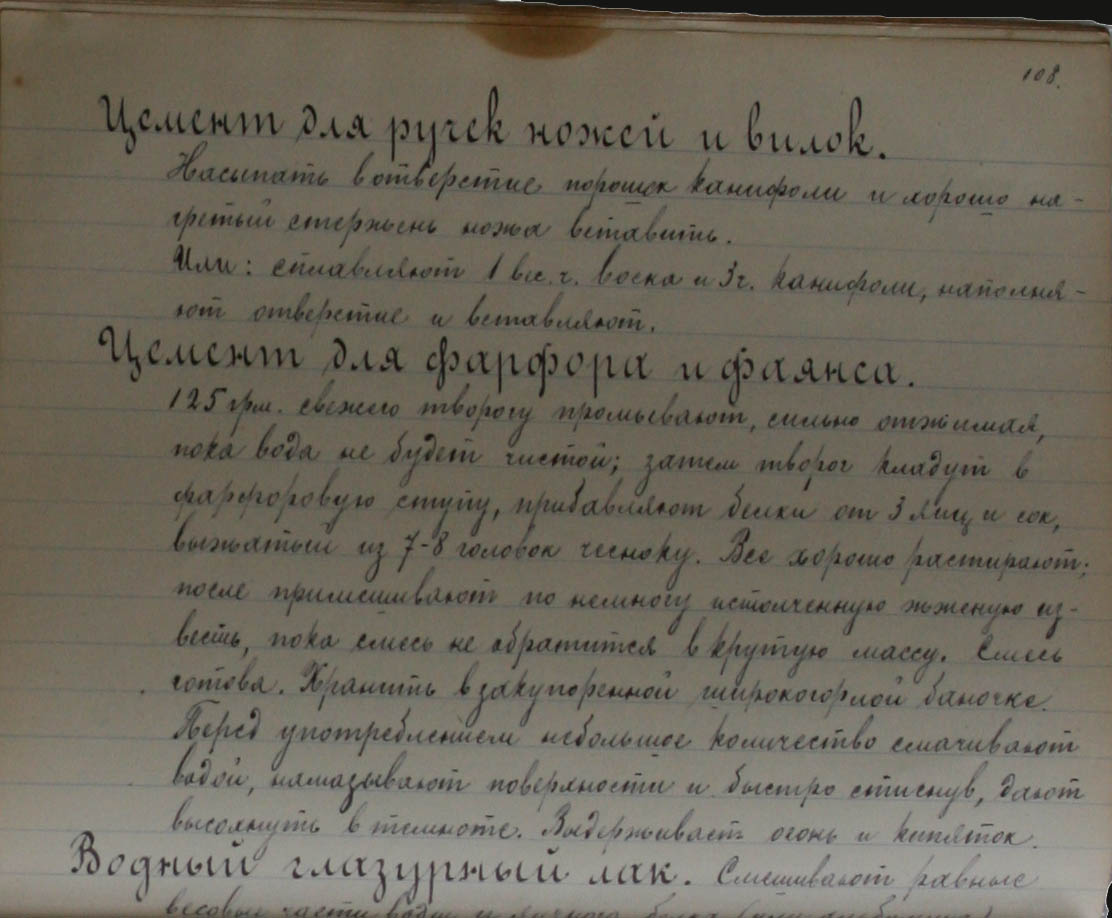 108.
Цемент для ручек ножей и вилок.
Насыпать в отверстие порошок канифоли и хорошо на-
гретый стержень ножа вставить.
Или: сплавляют 1 вес. ч. воска и 3 ч. канифоли, наполня-
ют отверстие и вставляют.
Цемент для фарфора и фаянса.
125 грм. свежего творогу промывают, сильно отжимая,
пока вода не будет чистой; затем творог кладут в
фарфоровую ступу, прибавляют белки от 3 яиц и сок,
выжатый из 7-8 головок чесноку. Все хорошо растирают;
после примешивают по немногу истолченную жженую из-
весть, пока смесь не обратится в крутую массу. Смесь
готова. Хранить в закупоренной широкогорлой баночке.
Перед употреблением небольшое количество смачивают
водой, намазывают поверхности и быстро стиснув, дают
высохнуть в темноте. Выдерживает огонь и кипяток.
Водный глазурный лак. Смешивают равные
весовые части воды и яичного белка